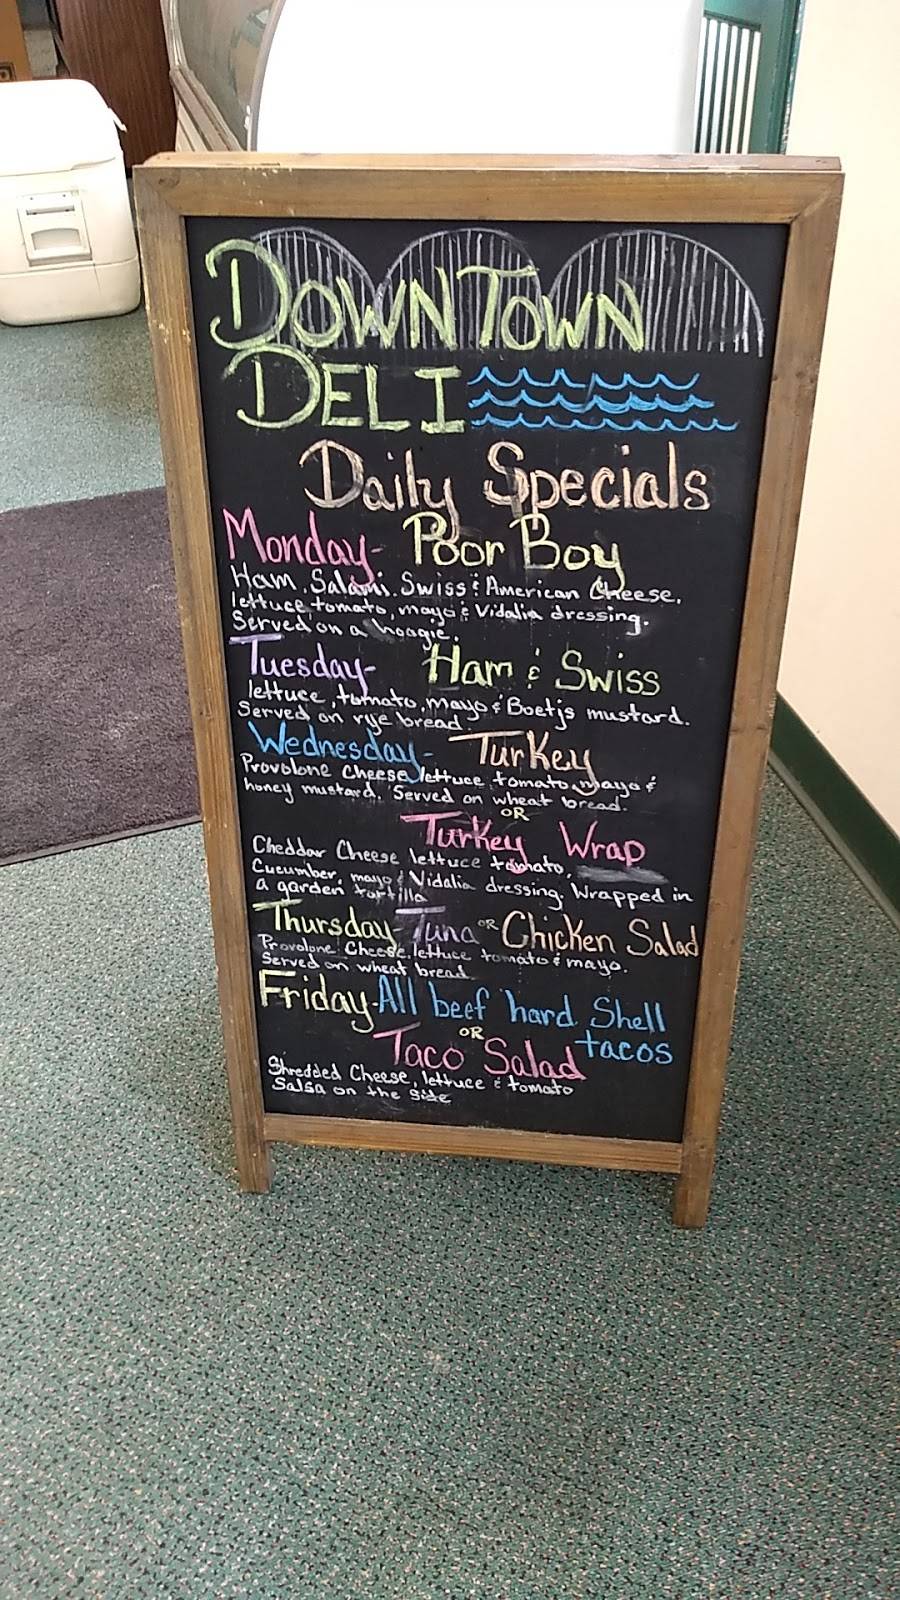 DOWNTOWN
DELI
Daily Specials
Monday- Poor Boy
Ham, Salami, Swiss & American Cheese,
lettuce, tomato, mayo & Vidalia dressing.
Served on a hoagie.
Tuesday- Ham & Swiss
lettuce, tomato, mayo & Boetjs mustard.
Served on rye bread.
Wednesday- Turkey
Provolone Cheese, lettuce, tomato, mayo &
honey mustard. Served on wheat bread.
OR
Turkey Wrap
Cheddar Cheese lettuce tomato,
Cucumber, mayo & Vidalia dressing. Wrapped in
a garden tortilla
Thursday- Tuna OR Chicken Salad
Provolone Cheese, lettuce tomato & mayo.
Served on wheat bread
Friday- All beef hard Shell
tacos
OR
Taco Salad
Shredded Cheese, lettuce & tomato
Salsa on the Side